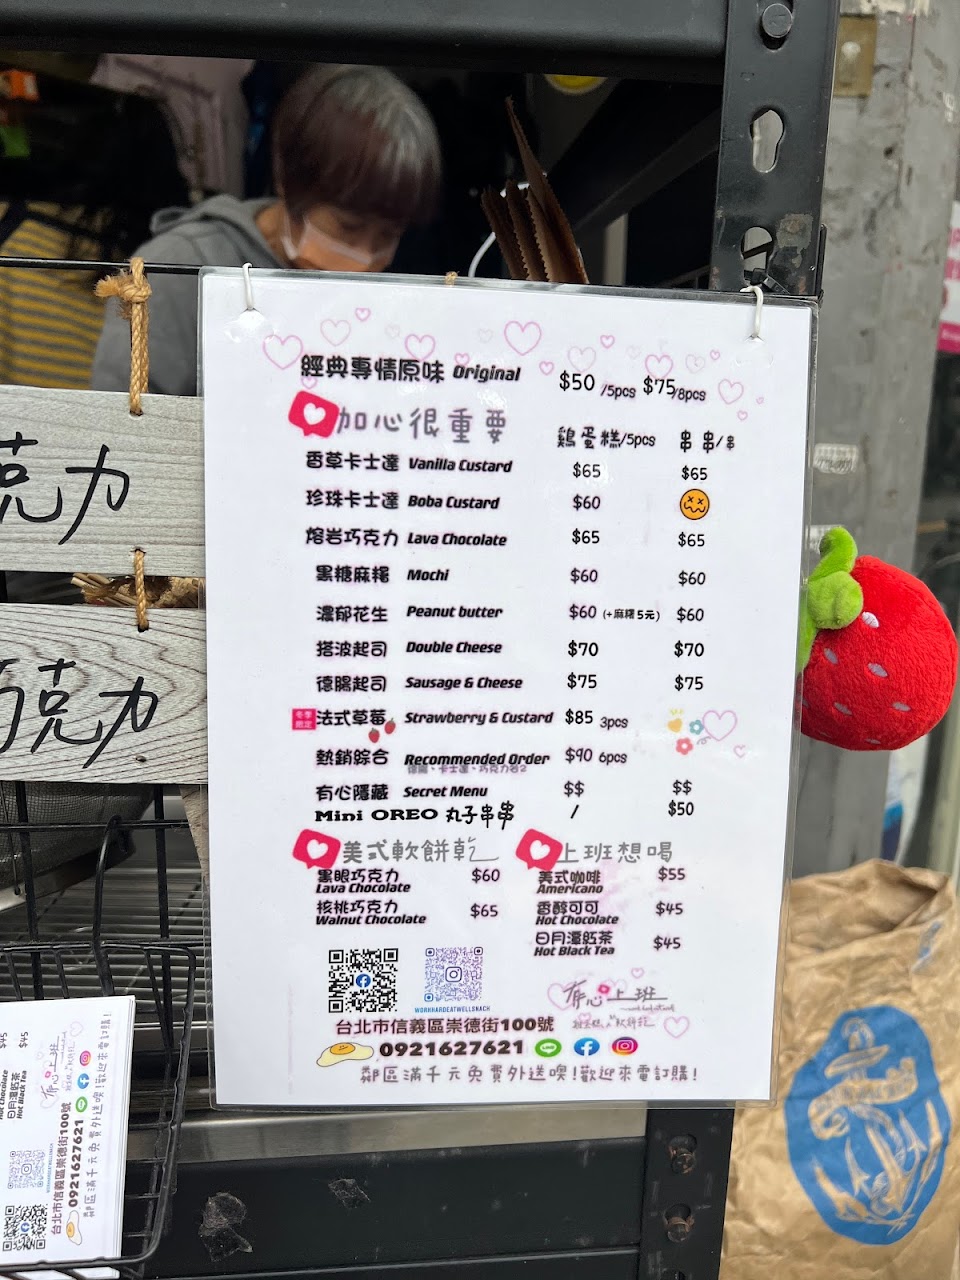 經典專情原味 Original $50 /5pcs $75/8pcs
加心很重要 鷄蛋糕/5pcs 串串/串
香草卡士達 Vanilla Custard $65 $65
珍珠卡士達 Boba Custard $60
熔岩巧克力 Lava Chocolate $65 $65
黑糖麻糬 Mochi $60 $60
濃郁花生 Peanut butter $60 (+麻糬5元) $60
搭波起司 Double Cheese $70 $70
德腸起司 Sausage & Cheese $75 $75
冬季限定 法式草莓 Strawberry & Custard $85 3pcs
熱銷綜合 Recommended Order $90 6pcs
德腸、卡士達、巧克力各2
有心隱藏 Secret Menu $$ $$
Mini OREO 丸子串串 / $50
美式軟餅乾 上班想喝
黑眼巧克力 $60 美式咖啡 $55
Lava Chocolate Americano
核桃巧克力 $65 香醇可可 $45
Walnut Chocolate Hot Chocolate
日月潭紅茶 $45
Hot Black Tea
WORKHARDEATWELLSNACH
有心上班
台北市信義區崇德街100號
0921627621
鄰區滿千元免費外送噢!歡迎來電訂購!
克力
巧克力
$45
$45
Hot Chocolate
日月潭紅茶
Hot Black Tea
有心上班
台北市信義區崇德街100號
0921627621
鄰區滿千元免費外送噢!歡迎來電訂購!